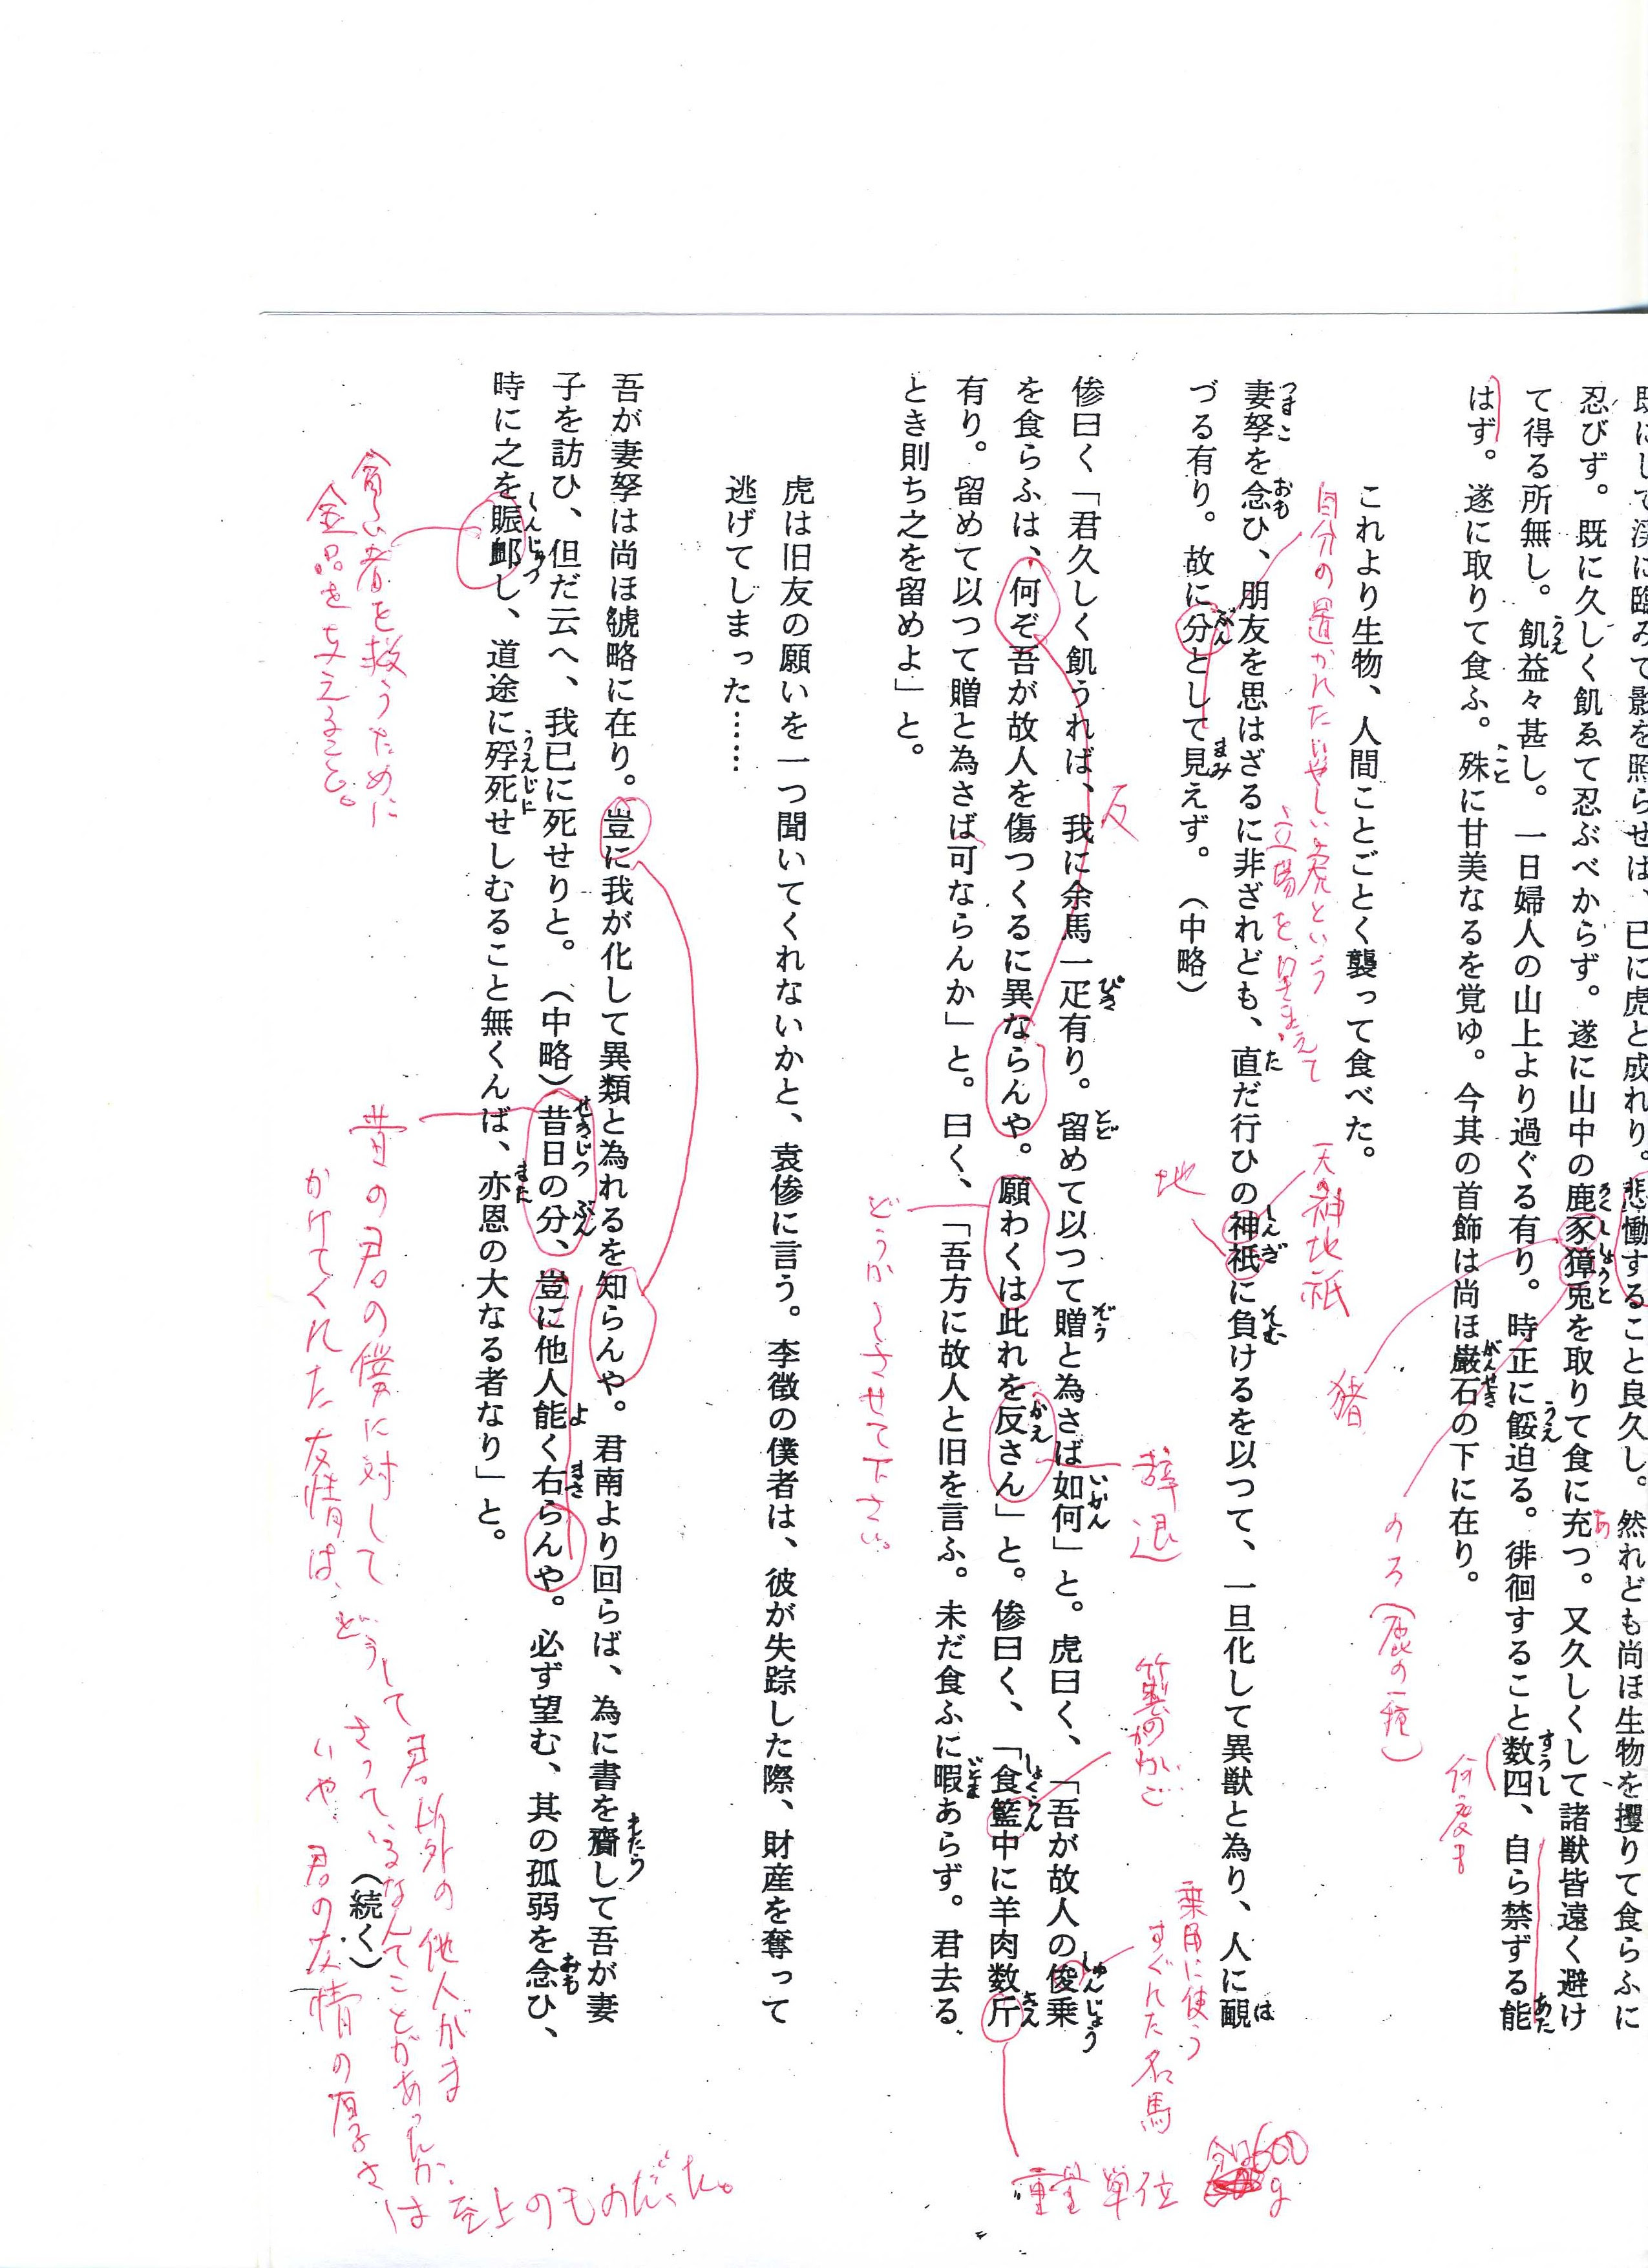 既にして渓に臨みて影を照らせば、已に虎と成れり。悲慟すること良久し。然れども尚ほ生物を攫りて食らふに
忍びず。既に久しく飢ゑて忍ぶべからず。遂に山中の鹿豕獐兎を取りて食に充つ。又久しくして諸獣皆遠く避け
て得る所無し。飢益々甚し。一日婦人の山上より過ぐる有り。時正に餒迫る。徘徊すること数四、自ら禁ずる能
はず。遂に取りて食ふ。殊に甘美なるを覚ゆ。今其の首飾は尚ほ巌石の下に在り。
ろくししょうと
あ
うえ
うえ
すうし
あた
こと
がんせき
猪
のろ(鹿の一種)
何度も
これより生物、人間ことごとく襲って食べた。
自分の置かれたいやしい虎という
立場を草まえて
天の神地祇
地
妻孥を念ひ、朋友を思はざるに非ざれども、直だ行ひの神祇に負けるを以つて、一旦化して異獣と為り、人に覼
づる有り。故に分として見えず。(中略)
つまこ
おも
た
しんぎ
そむ
は
ぶん
まみ
反
辞退
竹製のかご
乗用に使う
すぐれた名馬
傪曰く「君久しく飢うれば、我に余馬一疋有り。留めて以つて贈と為さば如何」と。虎曰く、「吾が故人の俊乗
を食らふは、何ぞ吾が故人を傷つくるに異ならんや。願わくは此れを反さん」と。傪曰く、「食籃中に羊肉数斤
有り。留めて以つて贈と為さば可ならんか」と。曰く、「吾方に故人と旧を言ふ。未だ食ふに暇あらず。君去る
とき則ち之を留めよ」と。
ぴき
とど
ぞう
いかん
しゅんじょう
かえ
しょくらん
きん
いとま
重量単位
600
g
どうか〜させて下さい。
虎は旧友の願いを一つ聞いてくれないかと、袁傪に言う。李徴の僕者は、彼が失踪した際、財産を奪って
逃げてしまった……
吾が妻孥は尚ほ虢略に在り。豈に我が化して異類と為れるを知らんや。君南より回らば、為に書を齎して吾が妻
子を訪ひ、但だ云へ、我已に死せりと。(中略)昔日の分、豈に他人能く右らんや。必ず望む、其の孤弱を念ひ、
時に之を賑卹し、道途に殍死せしむること無くんば、亦恩の大なる者なり」と。
もたら
せきじつ
ぶん
よ
まさ
おも
しんじゅつ
うえじに
また
(続く)
貧しい者を救うために
金品を与えること。
昔の君の僕に対して
かけてくれた友情は、
どうして君以外の他人がま
さっているなんてことがあったか、
いや、君の友情の厚さ
は至上のものだった。